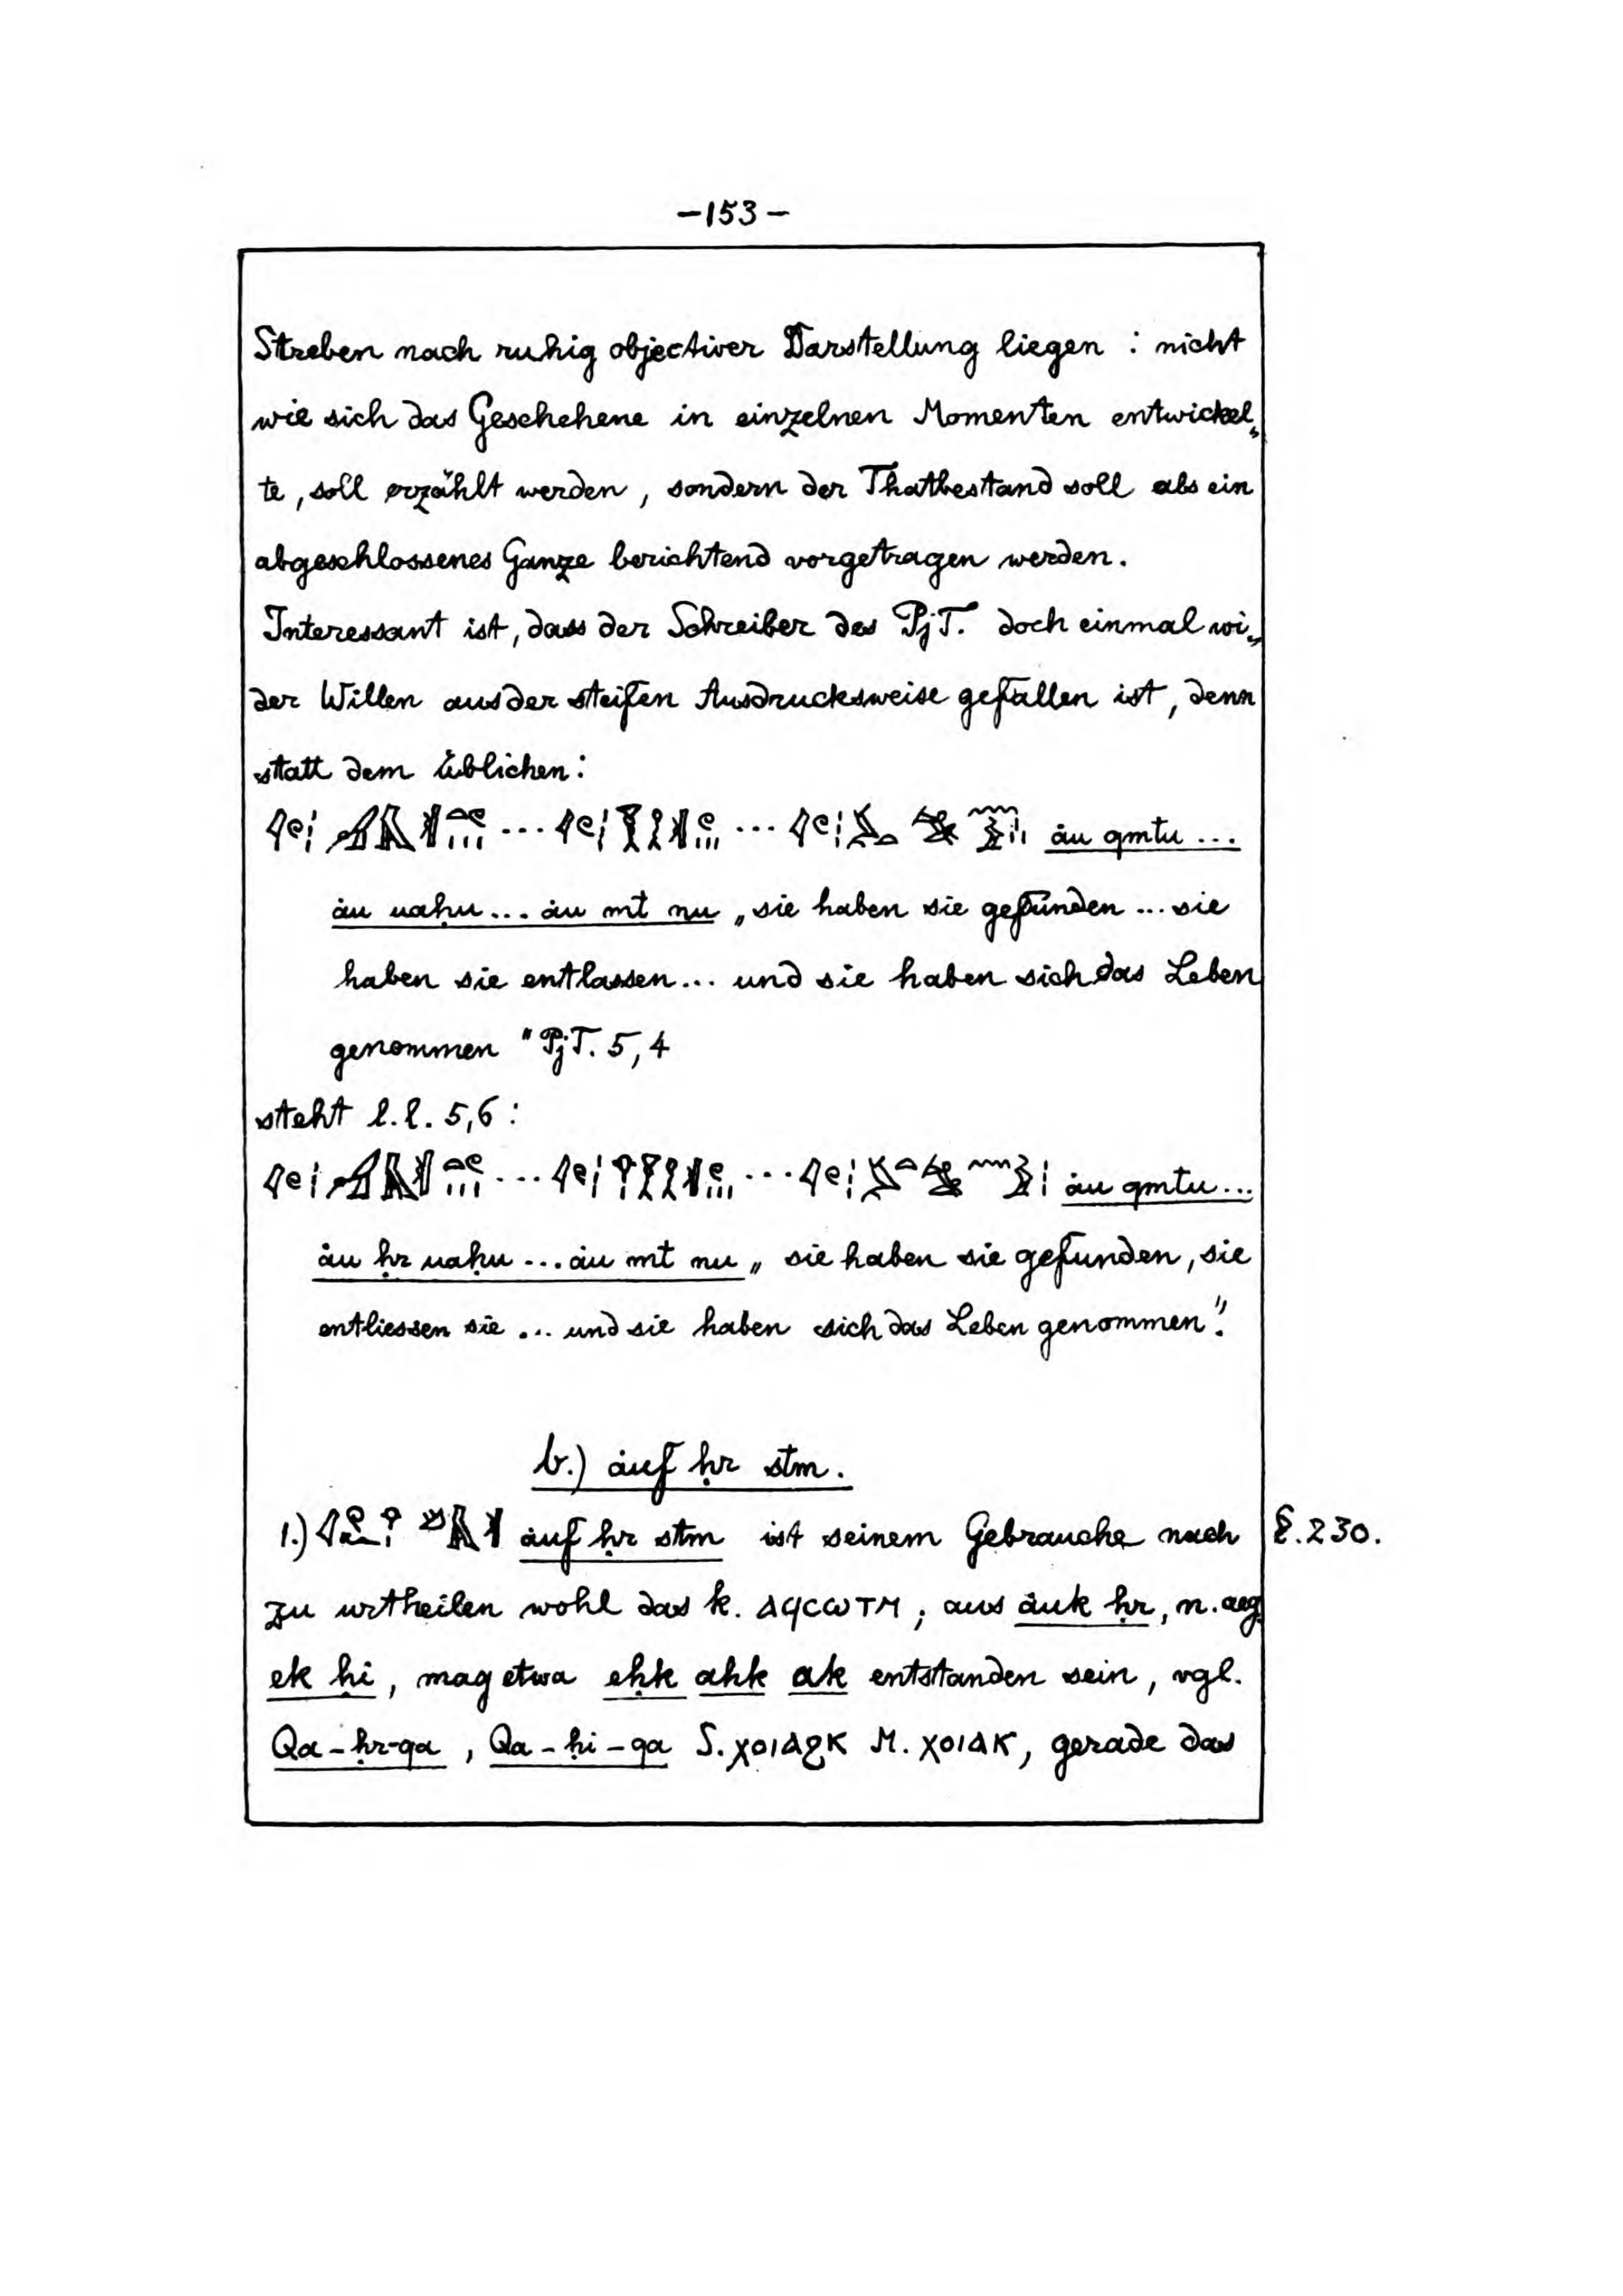 –153–
Streben nach ruhig objectiver Darstellung liegen : nicht
wie sich das Geschehene in einzelnen Momenten entwickel„
te, soll erzählt werden, sondern der Thatbestand soll als ein
abgeschlossenes Ganze berichtend vorgetragen werden.
Interessant ist, dass der Schreiber des PjT. doch einmal wi„
der Willen aus der steifen Ausdrucksweise gefallen ist, denn
statt dem üblichen:
... ... ȧu qmtu ...
ȧu uaḥu... ȧu mt nu „sie haben sie gefunden ... sie
haben sie entlassen... und sie haben sich das Leben
genommen " PjT. 5, 4
steht l.l. 5,6 :
... ... ȧu qmtu...
ȧu ḥr uaḥu ... ȧu mt nu „ sie haben sie gefunden, sie
entliessen sie ... und sie haben sich das Leben genommen".
b.) ȧuf ḥr stm.
1.) ȧuf ḥr stm ist seinem Gebrauche nach §.230.
zu urtheilen wohl das k. ⲁϥⲥⲱⲧⲙ; aus ȧuk ḥr, n. aeg.
ek ḥi, mag etwa eḥk ahk ak entstanden sein, vgl.
Qa–ḥr–qa, Qa–ḥi–qa S. ⲭⲟⲓⲁϩⲕ M. ⲭⲟⲓⲁⲕ, gerade das